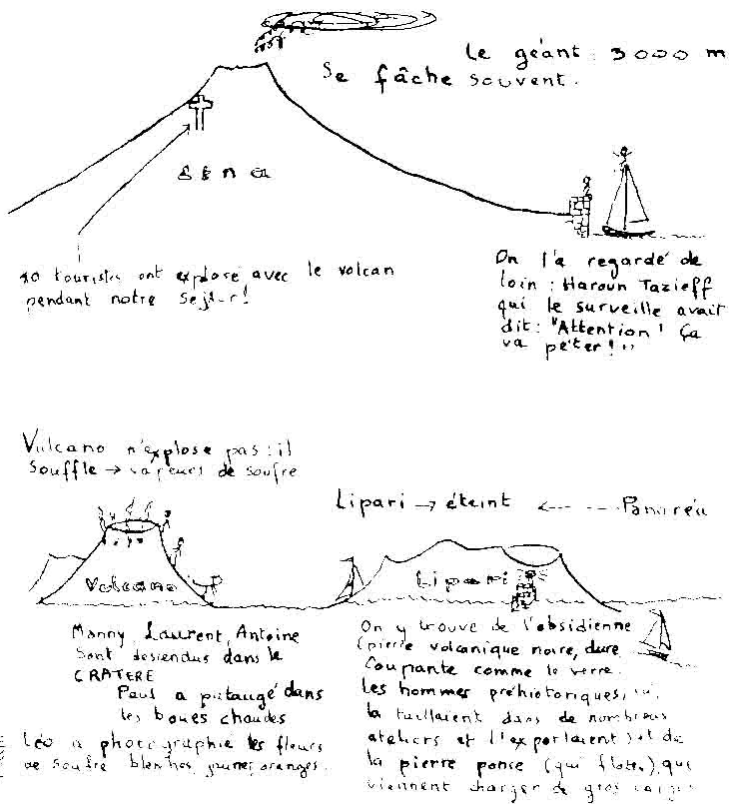 Le géant : 3000 m
Se fâche souvent.
Etna
10 touristes ont explosé avec le volcan
pendant notre séjour!
On l'a regardé de
loin : Haroun Tazieff
qui le surveille avait
dit : "Attention ! Ça
va péter!"
Vulcano n'explose pas : il
souffle → vapeurs de soufre
Lipari → éteint <--- --- Panarea
Volcano
Lipari
Manny, Laurent, Antoine
sont desiendus dans le
CRATERE
Paul a pataugé dans
les boues chaudes
Léo a photographié les fleurs
de soufre blanches, jaunes, oranges.
On y trouve de l'obsidienne
(pierre volcanique noire, dure
coupante comme le verre.
Les hommes préhistoriques,
la taillaient dans de nombreux
ateliers et l'exportaient) et de
la pierre ponce (qui flotte) que
viennent charger de gros